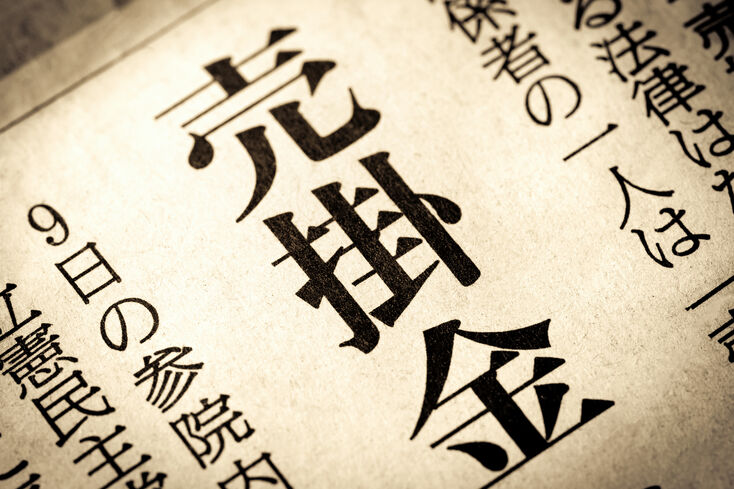 る法律は
係者の一人は
売掛金
9日の参院内
立憲民主